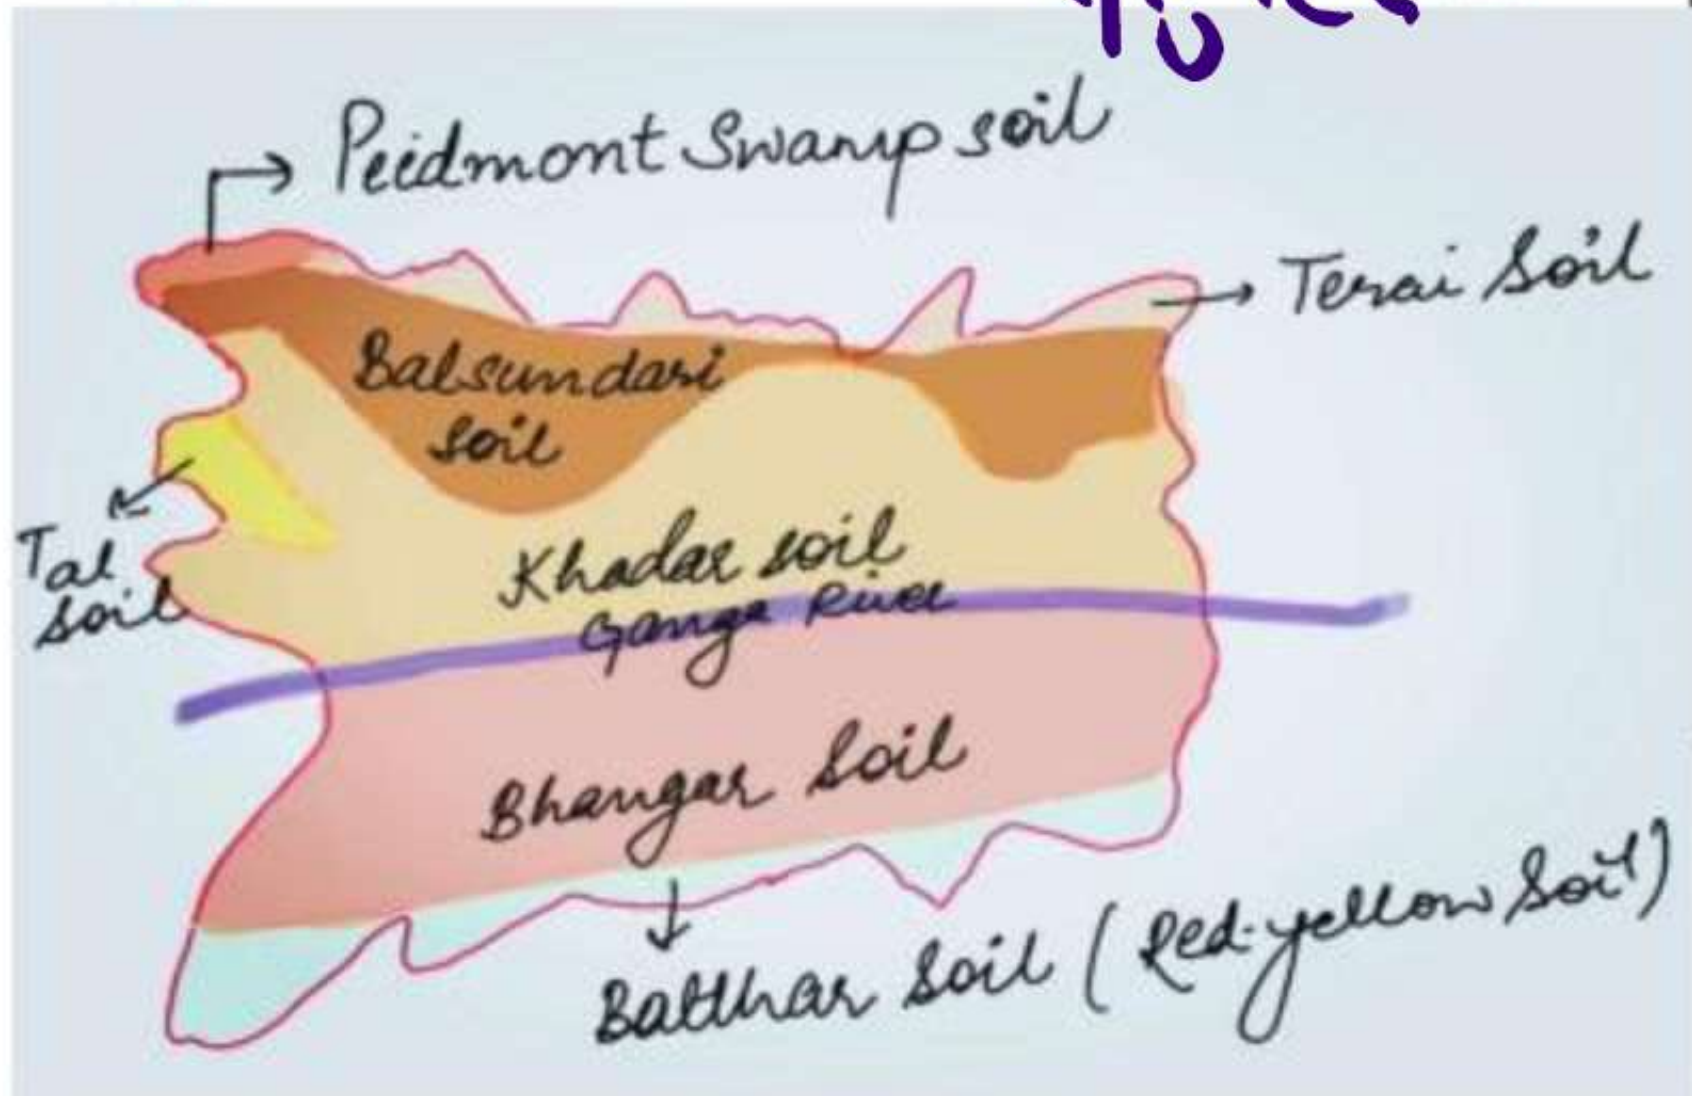 Peidmont Swamp soil
Terai Soil
Balsundari
soil
Tal
soil
Khadar soil
Ganga River
Bhangar Soil
Balthar Soil (Red-yellow Soil)